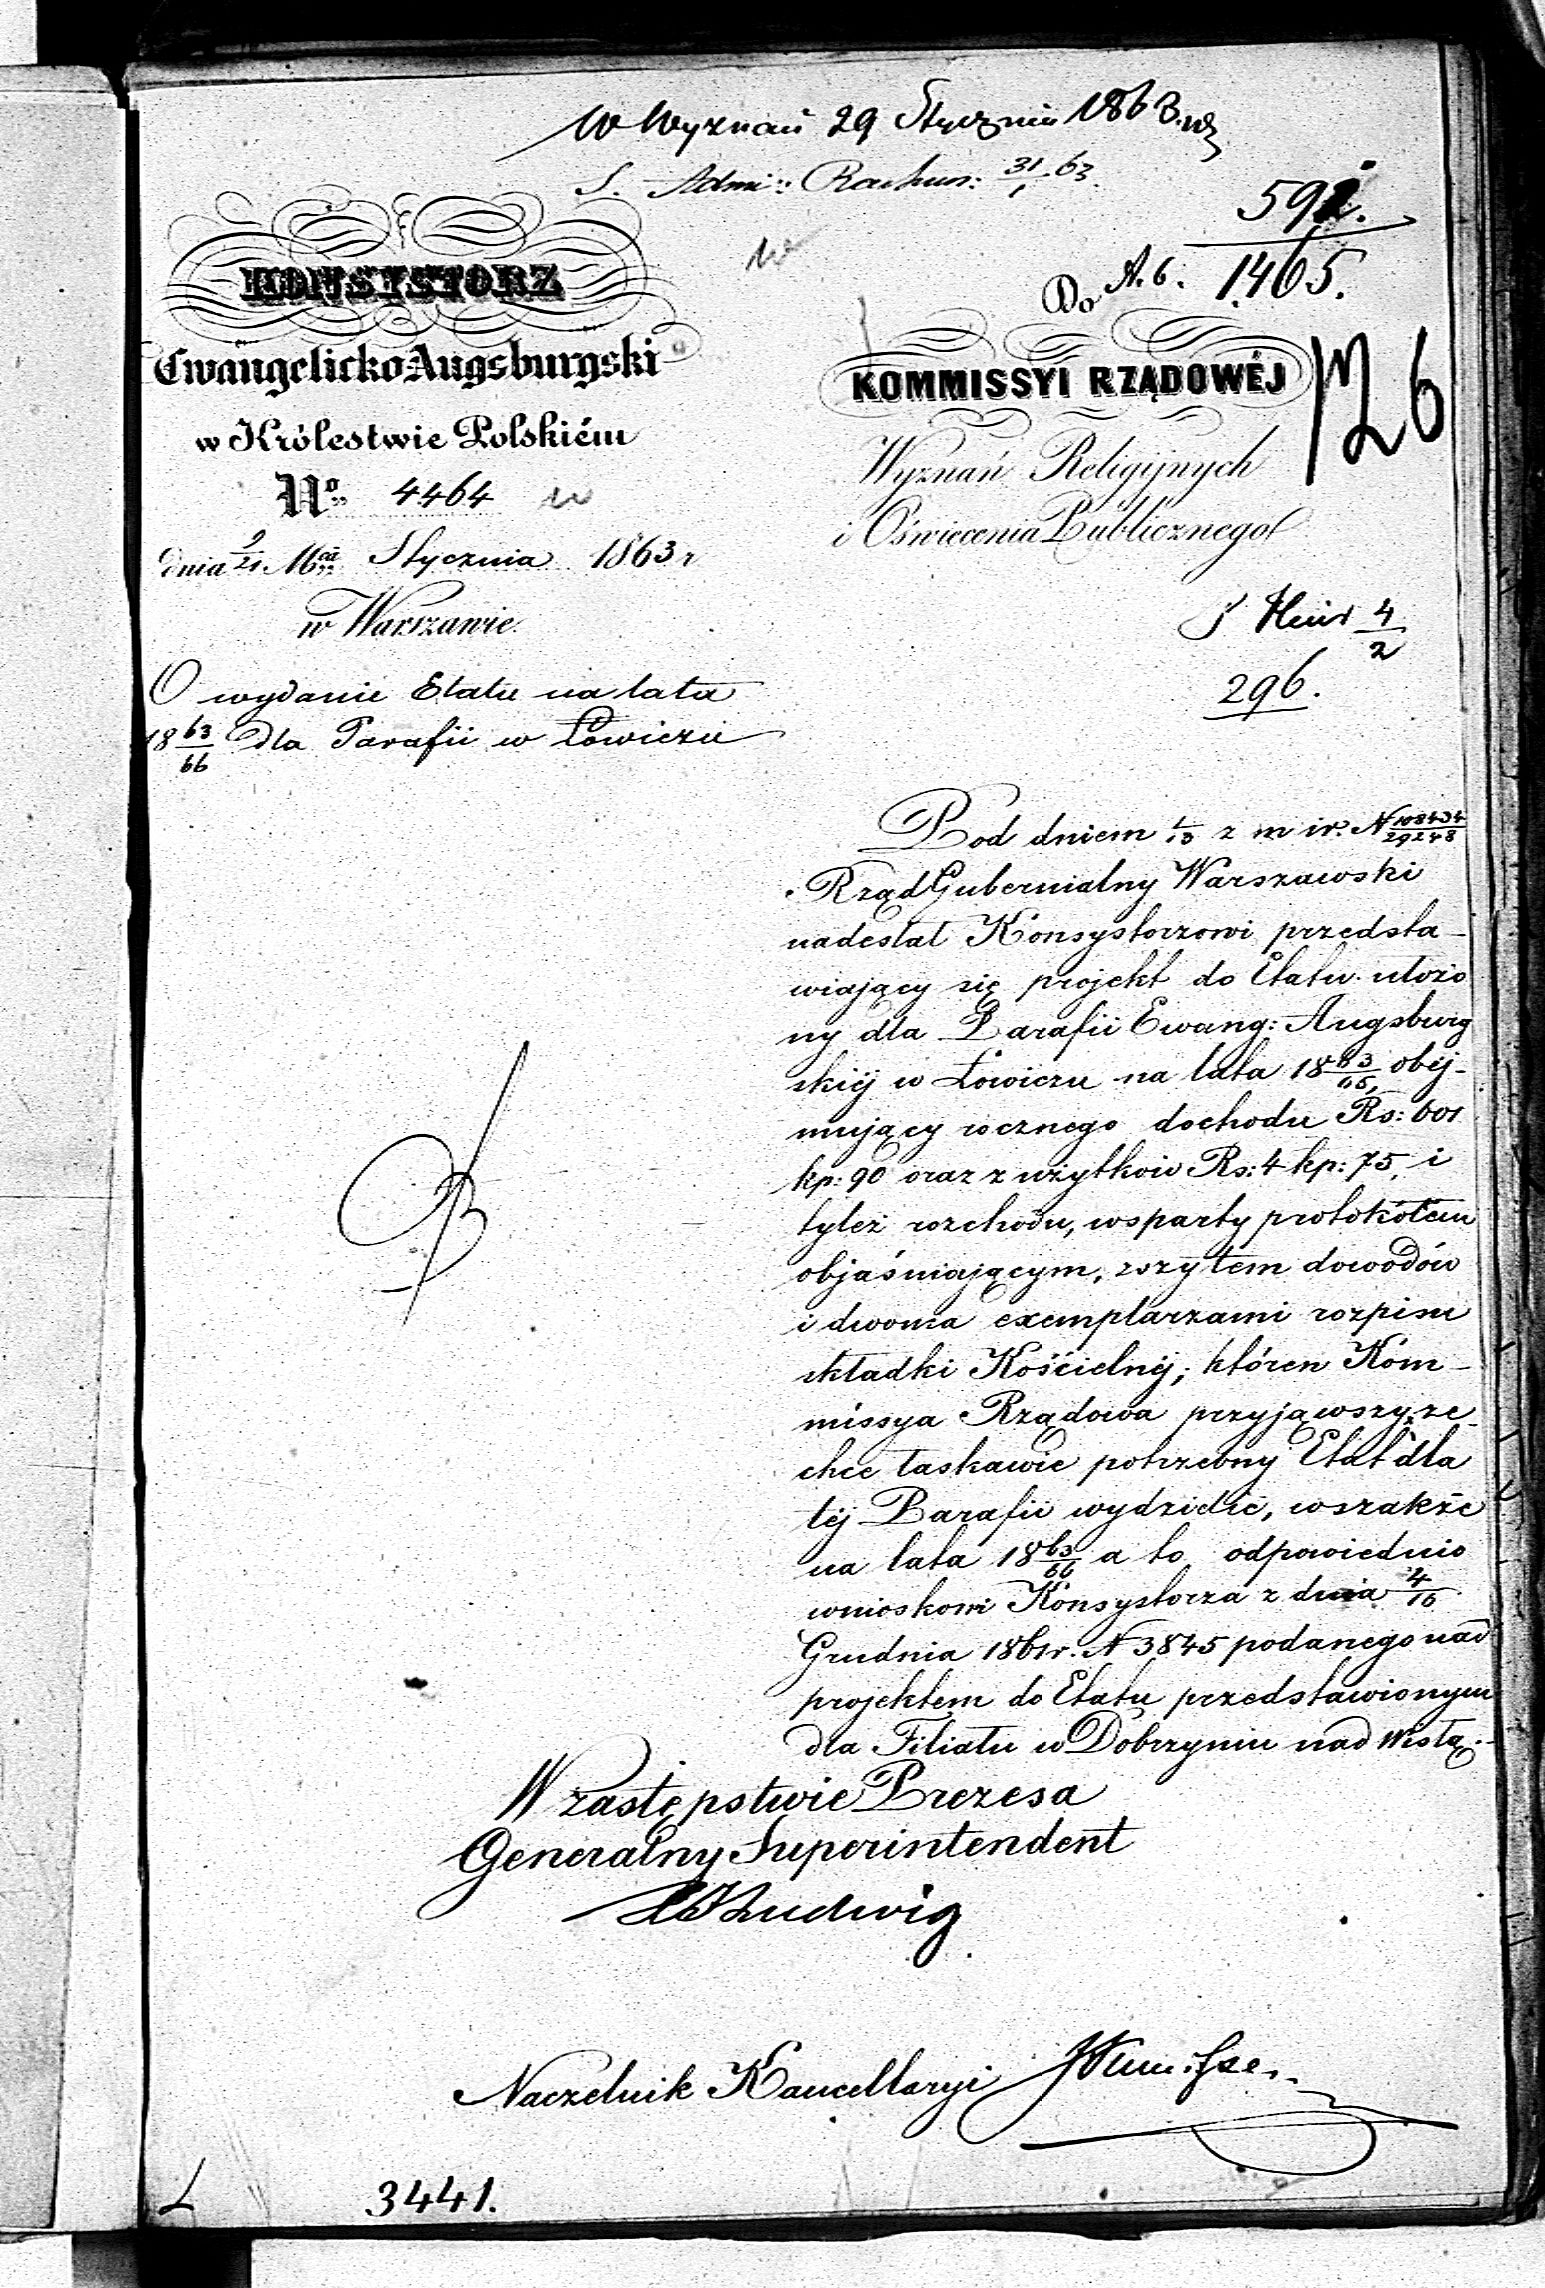 W Wyznań 29 Stycznia 1863. r
S. Admi: Rachun: 31/1 63.
591.
A. 6. 1465.
KONSYSTORZ
Ewangelicko-Augsburgski
w Królestwie Polskiém
No 4464
dnia 9/21 Mca Stycznia 1863 r
w Warszawie.
O wydanie Etatu na lata
18 63/66 dla Parafii w Łowiczu
Do
KOMMISSYI RZĄDOWÉJ
126
Wyznań Religijnych
i Oświecenia Publicznego
4/2
296.
Pod dniem 1/13 z m i r. N 108434/29248
Rząd Gubernialny Warszawski
nadesłał Konsystorzowi przedsta-
wiający się projekt do Etatu ułożo
ny dla Parafii Ewang: Augsburg
skiéj w Łowiczu na lata 18 63/65, obéj-
mujący rocznego dochodu Rs: 601
kp: 90 oraz z użytków Rs: 4 kp: 75, i
tyleż rozchodu, wsparty protokółem
objaśniającym, wszytem dowodów
i dwoma exemplarzami rozpisu
składki Kościelnéj; któren Kom-
missya Rządowa przyjąwszy ze-
chce łaskawie potrzebny Etat dla
téj Parafii wydzielić, wszakże
na lata 18 63/66 a to odpowiednio
wnioskowi Konsystorza z dnia 4/16
Grudnia 1861r. N 3845 podanego nad
projektem do Etatu przedstawionym
dla Filiału w Dobrzyniu nad Wisłą.
W zastępstwie Prezesa
Generalny Superintendent
Ludwig
Naczelnik Kancellaryi
L
3441.